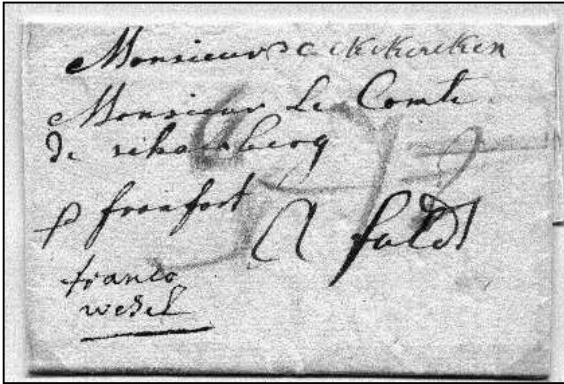 Monsieur
Monsieur Le Comte
de
p franfort
A fuld
franco
wesel